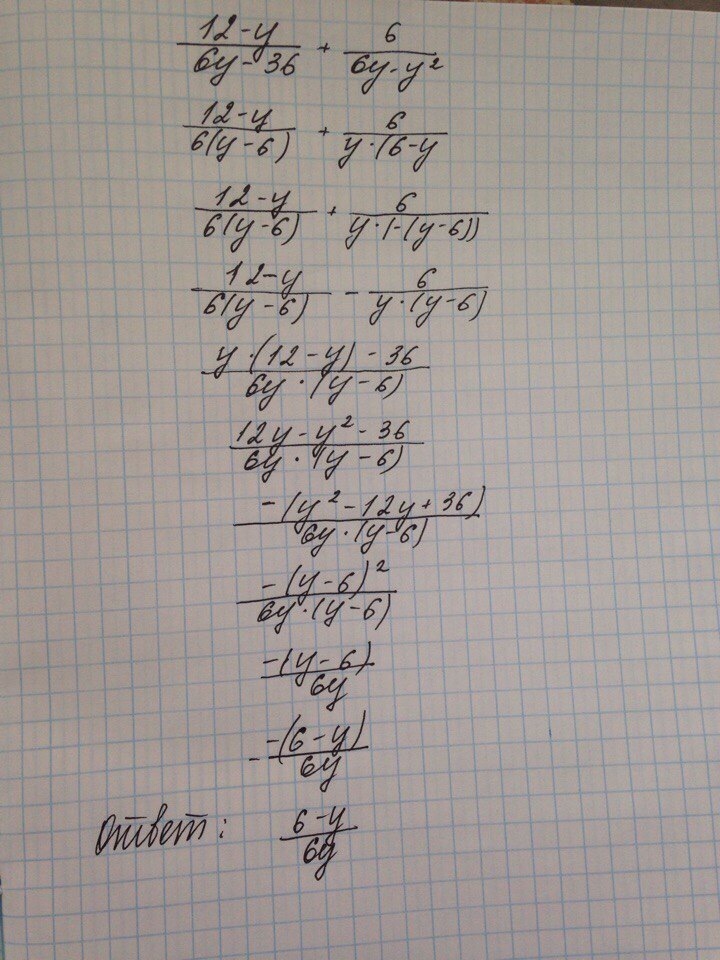 (12-y)/(6y-36) + 6/(6y-y²)
(12-y)/(6(y-6)) + 6/(y·(6-y
(12-y)/(6(y-6)) + 6/(y·(-(y-6)))
(12-y)/(6(y-6)) - 6/(y·(y-6))
(y·(12-y)-36)/(6y·(y-6))
(12y-y²-36)/(6y·(y-6))
(-(y²-12y+36))/(6y·(y-6))
(-(y-6)²)/(6y·(y-6))
(-(y-6))/(6y)
- (-(6-y))/(6y)
Ответ: (6-y)/(6y)